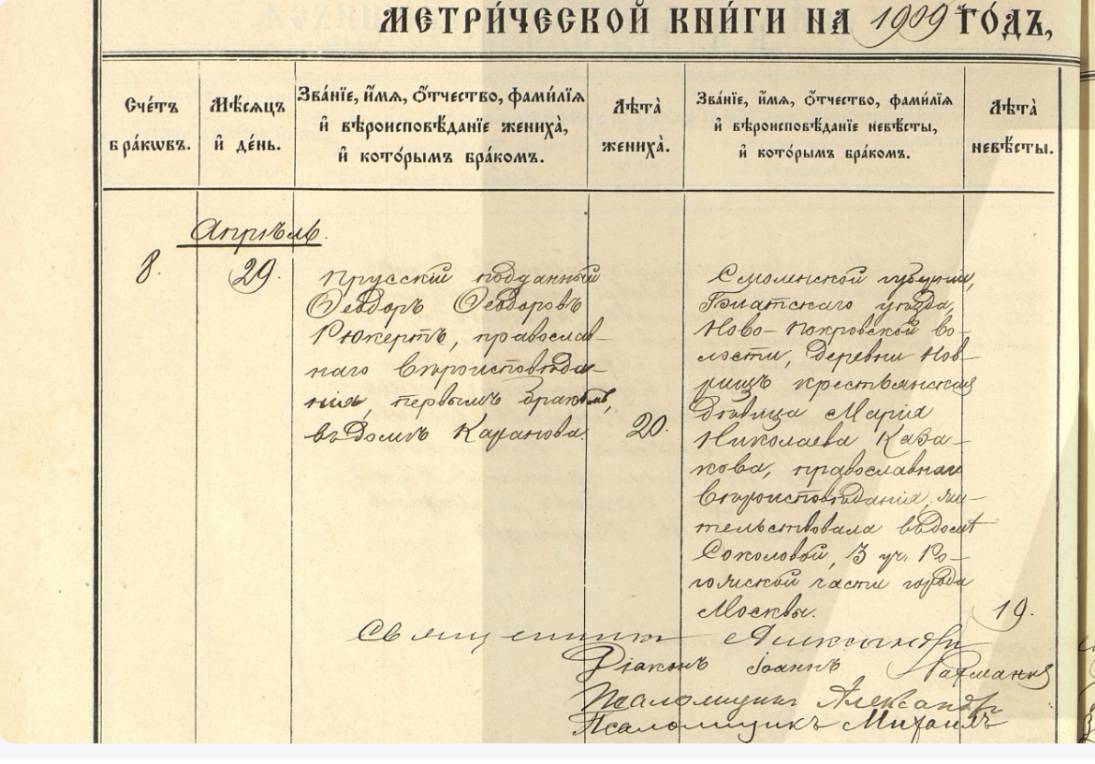 МЕТРИ́ЧЕСКОЙ КНИ́ГИ НА 1909 ГО́ДЪ,
Сче́тъ бра́кѡвъ.
Мѣ́сяцъ и҆ де́нь.
Зва́нїе, и҆́мѧ, ѻ҆́тчество, фами́лїѧ и҆ вѣроисповѣ́данїе жениха̀, и҆ кото́рымъ бра́комъ.
Лѣ́та жениха̀.
Зва́нїе, и҆́мѧ, ѻ҆́тчество, фами́лїѧ и҆ вѣроисповѣ́данїе невѣ́сты, и҆ кото́рымъ бра́комъ.
Лѣ́та невѣ́сты.
Апрѣль.
8.
29.
Прусскій подданный
Ѳеодоръ Ѳеодоровъ
Рюкертъ, православ-
наго вѣроисповѣда-
нія, первымъ бракомъ,
въ домѣ Каранова.
20.
Смоленской губерніи,
Гжатскаго уѣзда,
Ново-Покровской во-
лости, деревни Нов-
рищъ крестьянская
дѣвица Марія
Николаева Каза-
кова, православнаго
вѣроисповѣданія, жи-
тельствовала въ домѣ
Соколовой, 3 уч. Ро-
гожской части города
Москвы.
19.
Священникъ Александръ
Діаконъ Іоаннъ
Псаломщикъ Александръ
Псаломщикъ Михаилъ